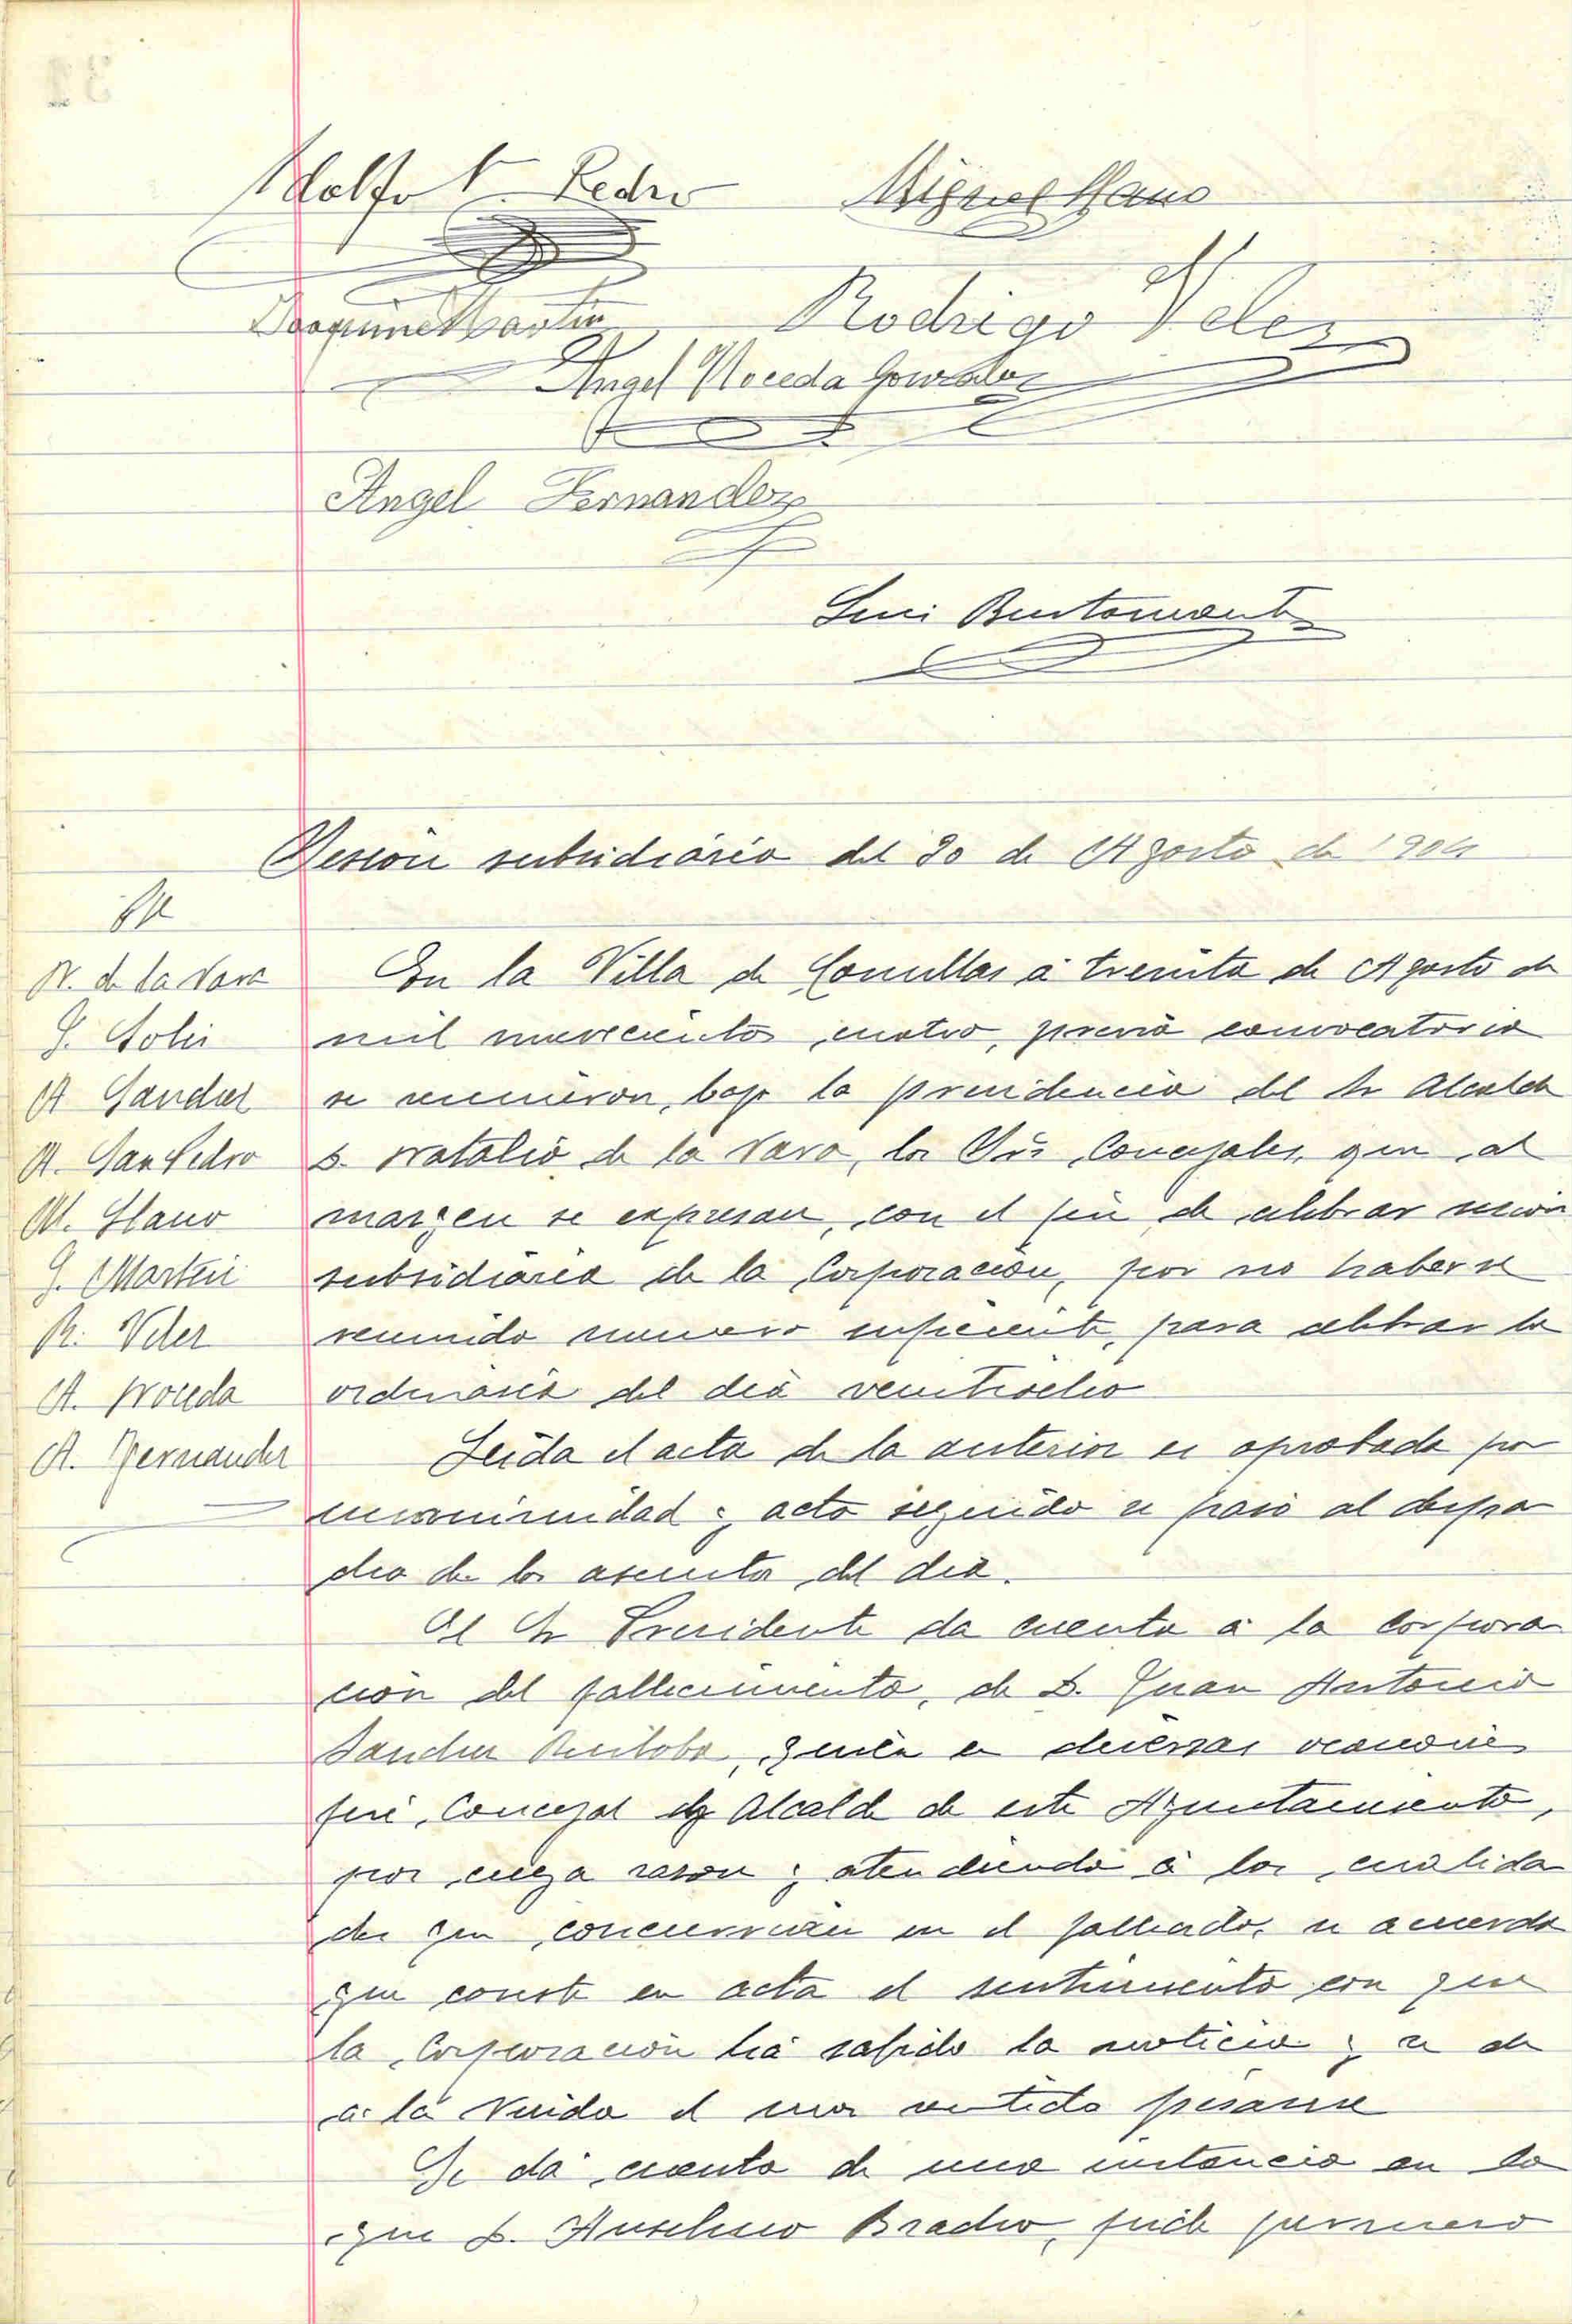 Adolfo S. Pedro
Miguel Llano
Joaquin Martin
Rodrigo Velez
Angel Noceda Gonzalez
Angel Fernandez
Luis Bustamante
Sesion subsidiária del 30 de Agosto de 1904
N. de la Vara
J. Solis
A Sanchez
A. San Pedro
M. Llano
J. Martin
R. Velez
A. Noceda
A. Fernandez
En la Villa de Comillas á treinta de Agosto de
mil novecientos cuatro, previa convocatoria
se reunieron, bajo la presidencia del Sr Alcalde
D. Natalio de la Vara, los Srs Concejales, que al
margen se expresan, con el fin de celebrar sesion
subsidiaria de la Corporación, por no haberse
reunido numero suficiente, para celebrar la
ordinaria del dia veintiocho
Leida el acta de la anterior es aprobada por
unanimidad y acto seguido se pasó al despa
cho de los asuntos del dia.
El Sr Presidente da cuenta á la corpora
cion del fallecimiento, de D. Juan Antonio
Sanchez, quien en diversas ocasiones
fué, Concejal y Alcalde de este Ayuntamiento,
por cuya razon y atendiendo á las cualida
des que concurrian en el fallecido, se acuerda
que conste en acta el sentimiento con que
la Corporación há sabido la noticia y se de
á la Viuda el mas sentido pesame
Se dá cuenta de una instancia en la
que D. Anselmo Bracho, pide permiso